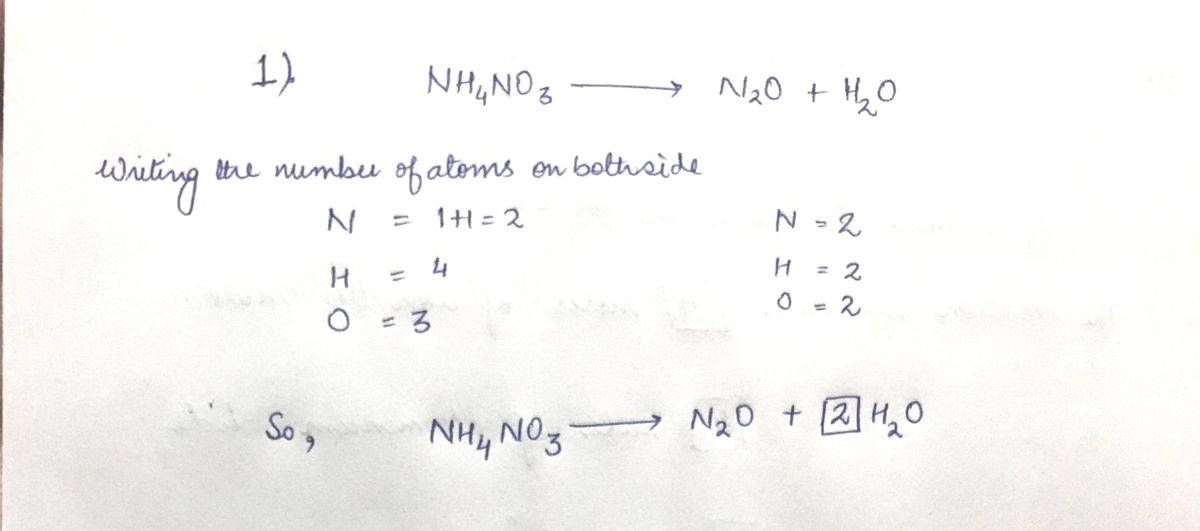 1). NH₄NO₃ ⟶ N₂O + H₂O
Writing the number of atoms on both side
N = 1+1 = 2 N = 2
H = 4 H = 2
O = 3 O = 2
So, NH₄NO₃ ⟶ N₂O + 2 H₂O